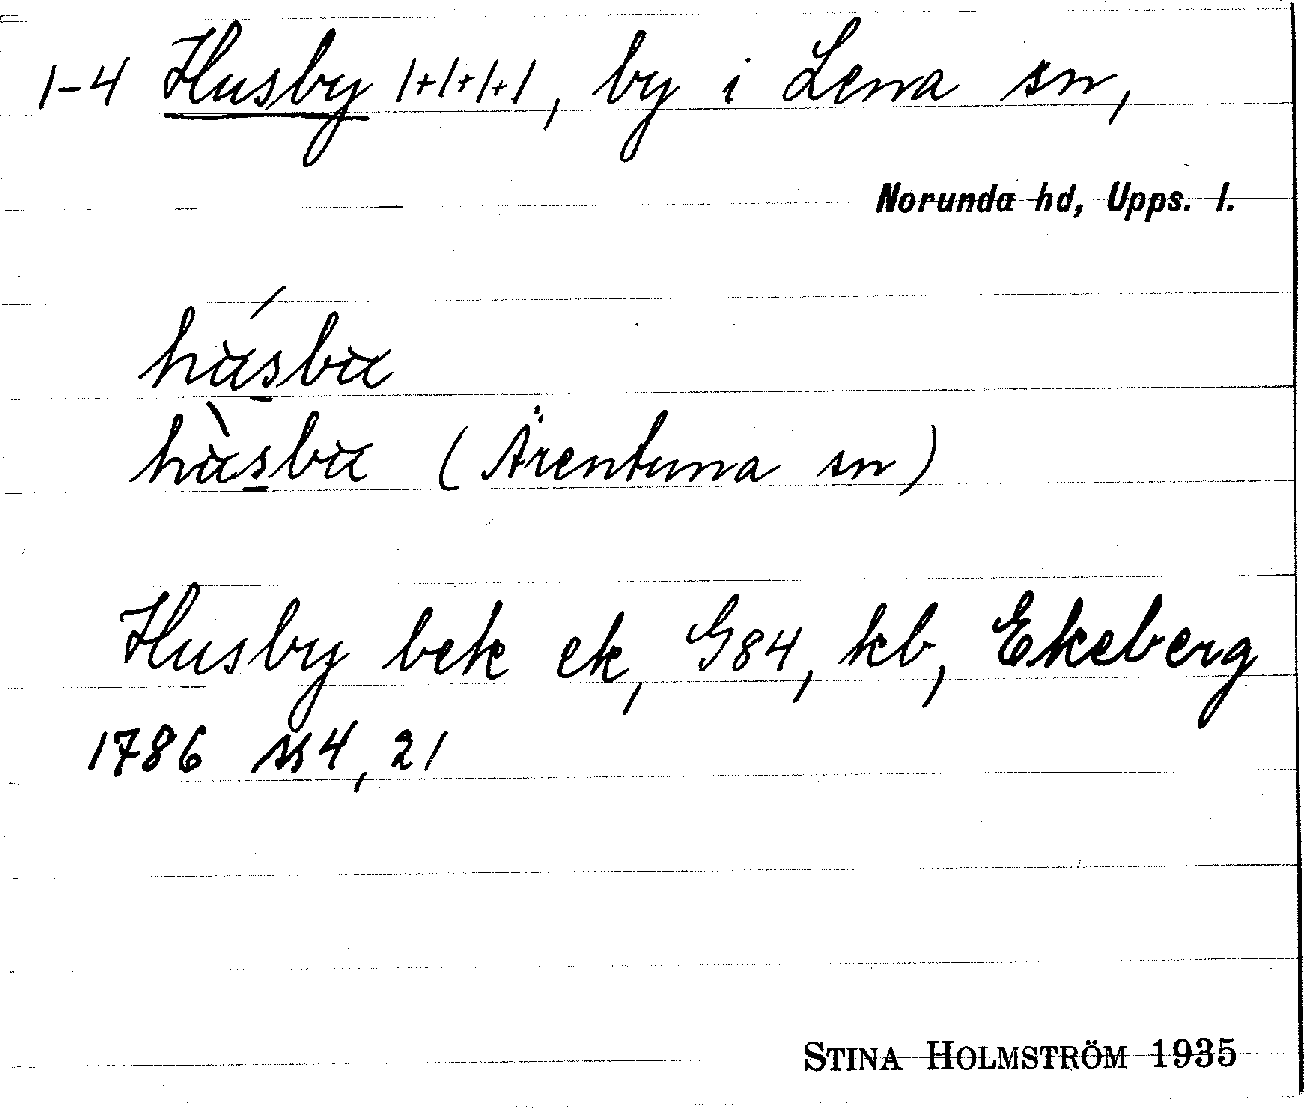 1-4 Husby 1+1+1+1, by i Lena sn,
Norunda hd, Upps. l.
(Ärentuna sn)
Husby bek ek, G84, kb, Ekeberg
1786 ss 4, 21
STINA HOLMSTRÖM 1935